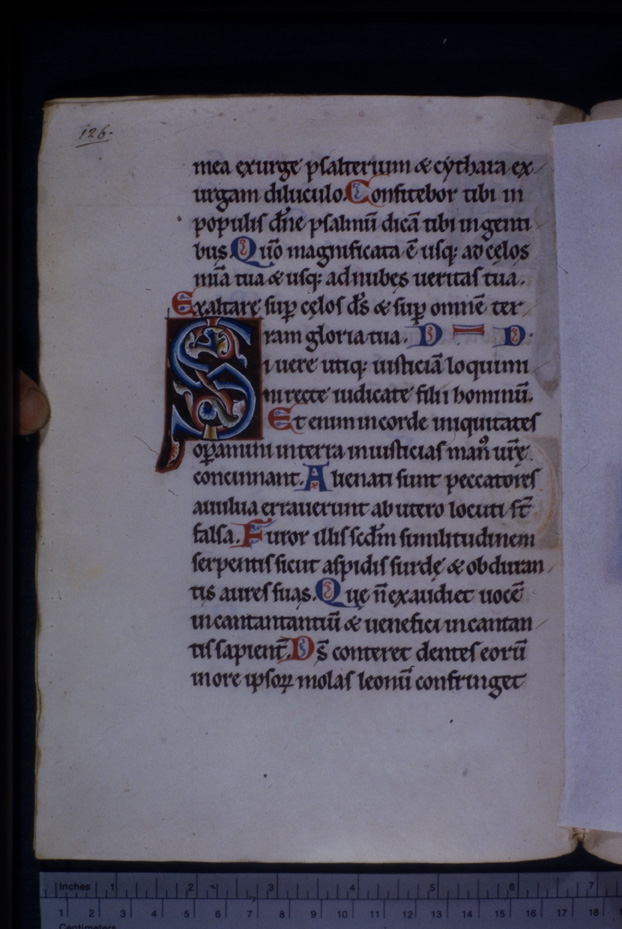 126.
mea exurge psalterium & cythara ex
urgam diluculo. Confitebor tibi in
populis dñe psalmū dicā tibi in genti
bus Quō magnificata ē usq; ad cęlos
mīa tua & usq; ad nubes ueritas tua.
Exaltare sup cęlos ds̄ & sup omnē ter
ram gloria tua. D D
Si uere utiq; iusticiā loquimi
ni recte iudicate filii hominū.
Et enim in corde iniquitates
opamini in terra iniusticias man' ur̄ę
concinnant. Alienati sunt peccatores
a uulua errauerunt ab utero locuti st̄
falsa. Furor illis scdm̄ similitudinem
serpentis sicut aspidis surdę & obduran
tis aures suas. Que n̄ exaudiet uocē
incantantiū & uenefici incantan
tis sapient̄. Ds̄ conteret dentes eorū
in ore ipsoꝝ molas leonū confringet
Inches 1 2 3 4 5 6 7
1 2 3 4 5 6 7 8 9 10 11 12 13 14 15 16 17 18
Centimeters